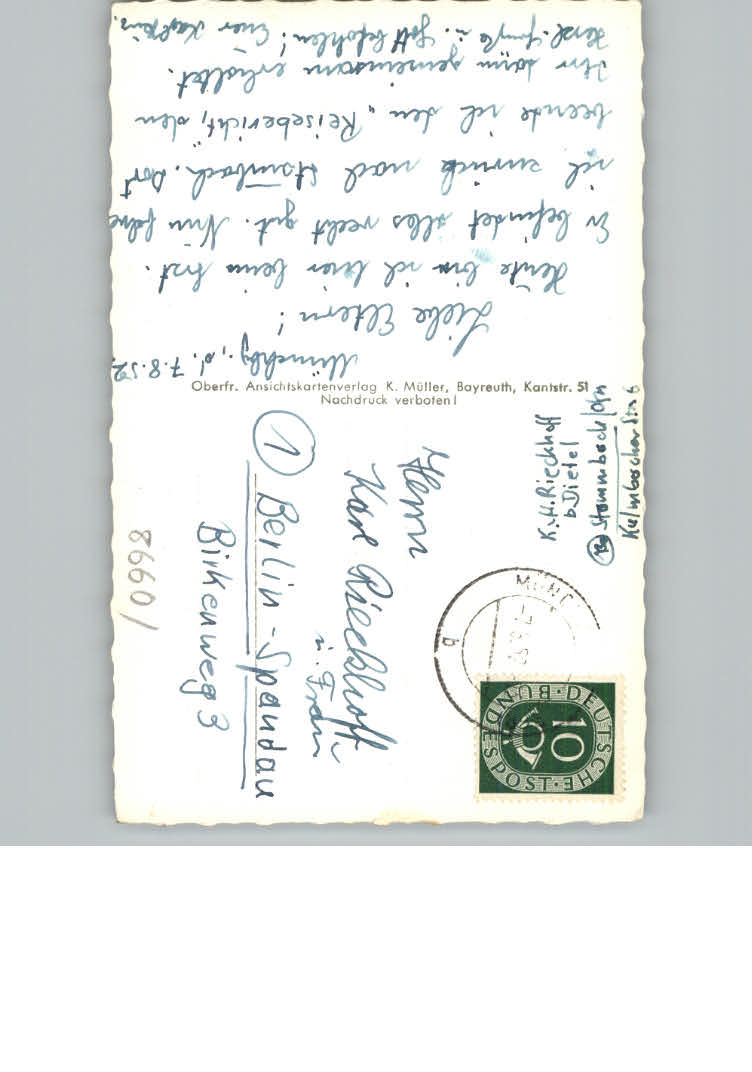 Münchbg., d. 7.8.52.
Liebe Eltern!
Heute bin ich hier beim Arzt.
Er befindet alles recht gut. Nun fahre
ich zurück nach Stambach. Dort
beende ich den „Reisebericht", den
Ihr dann gemeinsam erhaltet.
Herzl. Grüße u. Gott befohlen! Euer
Oberfr. Ansichtskartenverlag K. Müller, Bayreuth, Kantstr. 51
Nachdruck verboten!
K.H. Rieckhoff
b. Dietel
Stammbach/Ofr.
Kulmbacher Str. 6
Herrn
Karl Rieckhoff
u. Frau
1 Berlin-Spandau
Birkenweg 3
DEUTSCHE BUNDESPOST
10
MÜNC
-7.8.52
a
0998/